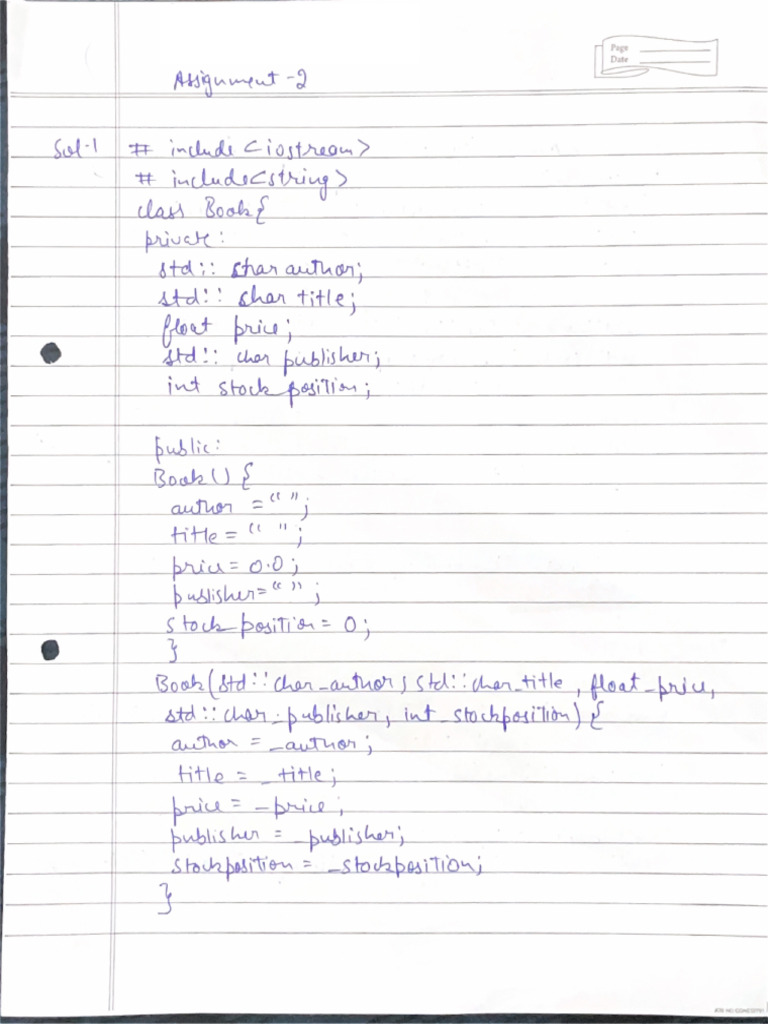 Page
Date
Assignment -2
Sol-1 # include <iostream>
# include<string>
class Book{
private:
std:: char author;
std:: char title;
float price;
std:: char publisher;
int stock position;
public:
Book() {
author = " ";
title = " ";
price = 0.0;
publisher=" ";
stock position = 0;
}
Book(std::char _author, std::char _title, float _price,
std::char _publisher, int _stockposition) {
author = _author;
title = _title;
price = _price;
publisher = _publisher;
stockposition = _stockposition;
}